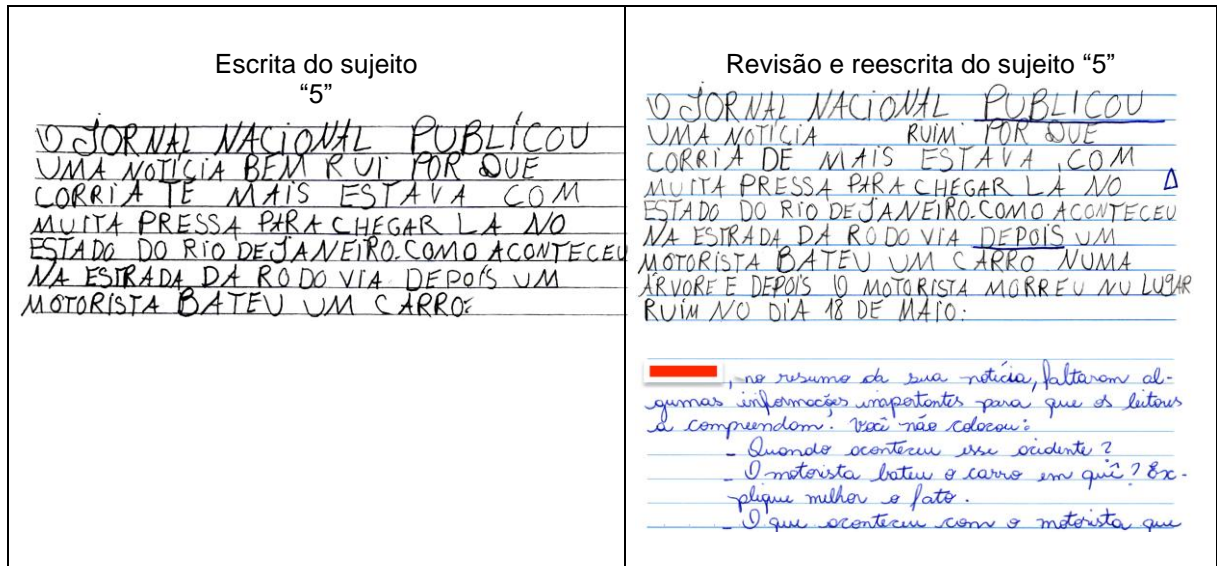 Escrita do sujeito
“5”
O JORNAL NACIONAL PUBLÍCOU
UMA NOTÍCIA BEM RUI POR QUE
CORRIA TE MAIS ESTAVA COM
MUITA PRESSA PARA CHEGAR LA NO
ESTADO DO RIO DE JANEIRO. COMO ACONTECEU
NA ESTRADA DA RODOVIA DEPOIS UM
MOTORISTA BATEU UM CARRO:
Revisão e reescrita do sujeito “5”
O JORNAL NACIONAL PUBLICOU
UMA NOTÍCIA RUIM POR QUE
CORRIA DE MAIS ESTAVA , COM
MUITA PRESSA PARA CHEGAR LÁ NO Δ
ESTADO DO RIO DE JANEIRO. COMO ACONTECEU
NA ESTRADA DA RODOVIA DEPOIS UM
MOTORISTA BATEU UM CARRO NUMA
ÁRVORE E DEPOIS O MOTORISTA MORREU NU LUGAR
RUIM NO DIA 18 DE MAIO:
, no resumo da sua notícia, faltaram al-
gumas informações importantes para que os leitores
a compreendam. Você não colocou:
- Quando aconteceu esse acidente?
- O motorista bateu o carro em quê? Ex-
plique melhor o fato.
- O que aconteceu com o motorista que